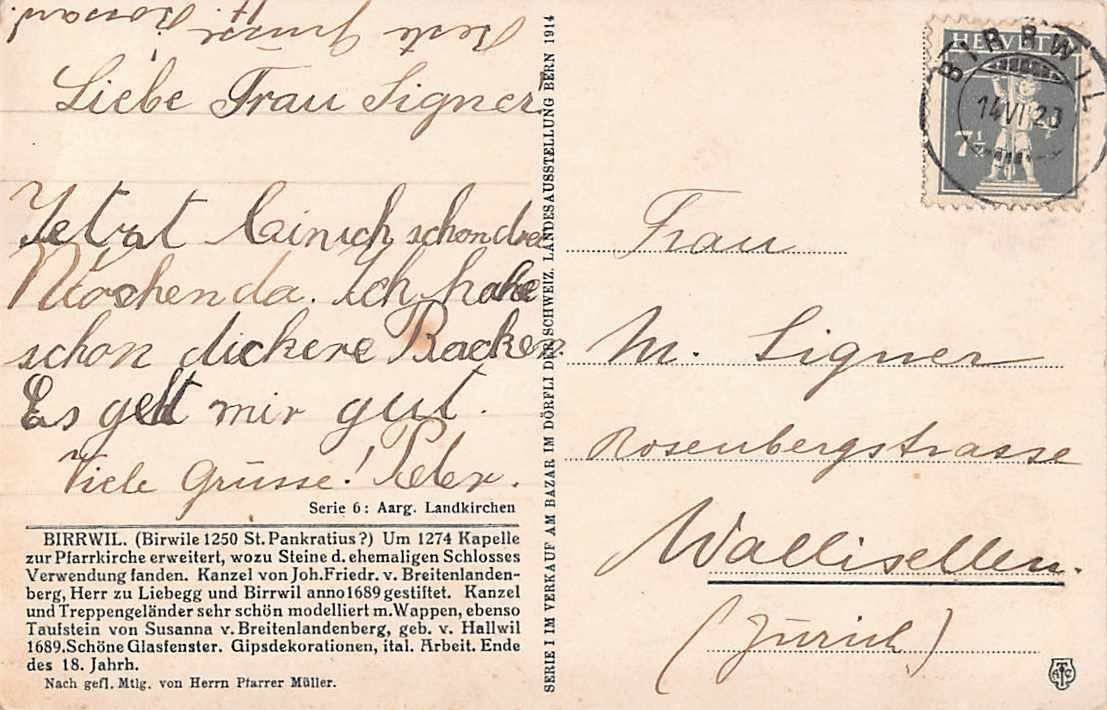 Beste Grüsse
Liebe Frau Signer
Jetzt bin ich schon drei
Wochen da. Ich habe
schon dickere Backen.
Es geht mir gut.
Viele Grüsse! Peter.
Serie 6: Aarg. Landkirchen
BIRRWIL. (Birwile 1250 St. Pankratius?) Um 1274 Kapelle
zur Pfarrkirche erweitert, wozu Steine d. ehemaligen Schlosses
Verwendung fanden. Kanzel von Joh. Friedr. v. Breitenlanden-
berg, Herr zu Liebegg und Birrwil anno 1689 gestiftet. Kanzel
und Treppengeländer sehr schön modelliert m. Wappen, ebenso
Taufstein von Susanna v. Breitenlandenberg, geb. v. Hallwil
1689. Schöne Glasfenster. Gipsdekorationen, ital. Arbeit. Ende
des 18. Jahrh.
Nach gefl. Mtlg. von Herrn Pfarrer Müller.
SERIE I IM VERKAUF AM BAZAR IM DÖRFLI DER SCHWEIZ. LANDESAUSSTELLUNG BERN 1914
HELVETIA
7½
BIRRWIL
14 VI 23
Frau
M. Signer
Rosenbergstrasse
Wallisellen.
(Zürich)